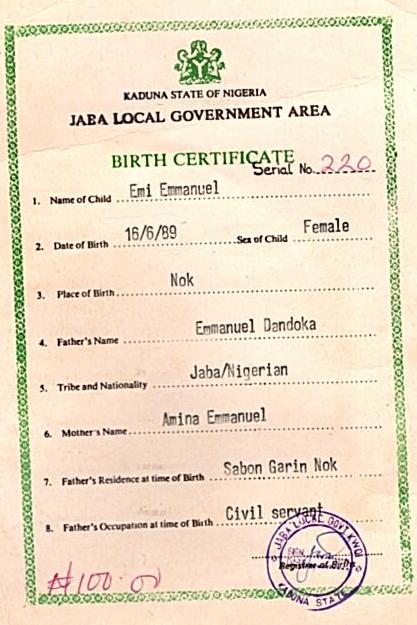 KADUNA STATE OF NIGERIA
JABA LOCAL GOVERNMENT AREA
BIRTH CERTIFICATE
Serial No. 220
1. Name of Child Emi Emmanuel
2. Date of Birth 16/6/89 Sex of Child Female
3. Place of Birth Nok
4. Father's Name Emmanuel Dandoka
5. Tribe and Nationality Jaba/Nigerian
6. Mother's Name Amina Emmanuel
7. Father's Residence at time of Birth Sabon Garin Nok
8. Father's Occupation at time of Birth Civil servant
JABA LOCAL GOVT. KWOI
Registrar of Births
KADUNA STATE
₦100.00